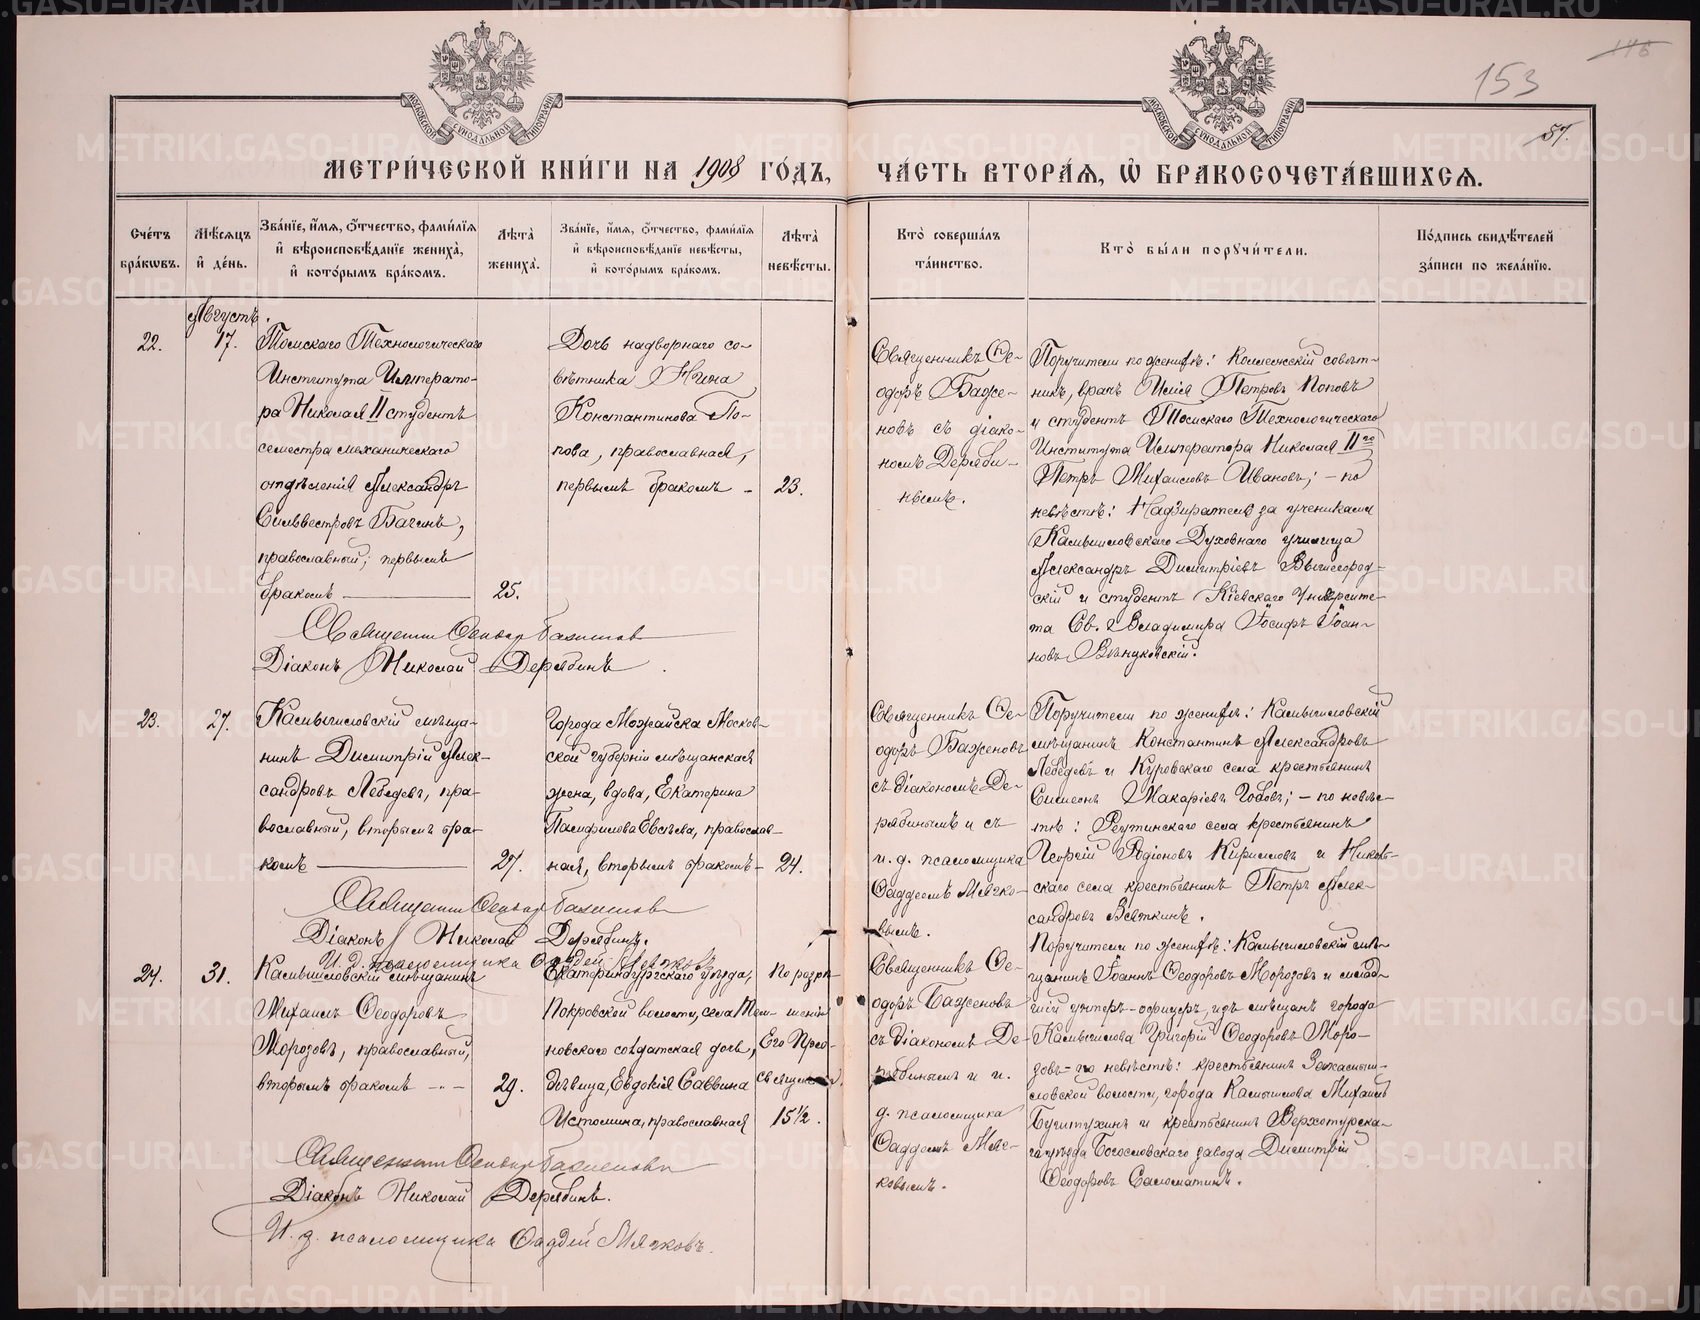 153
57.
МЕТРИ́ЧЕСКОЙ КНИ́ГИ НА 1908 ГО́ДЪ,
ЧА́СТЬ ВТОРА́Я, Ѡ҆ БРАКОСОЧЕТА́ВШИХСЯ.
Сче́тъ бра́кѡвъ.
Мѣ́сяцъ и҆ де́нь.
Зва́нїе, и҆́мя, ѻ҆́тчество, фами́лїя
и҆ вѣроисповѣ́данїе жениха̀,
и҆ кото́рымъ бра́комъ.
Лѣ́та жениха̀.
Зва́нїе, и҆́мя, ѻ҆́тчество, фами́лїя
и҆ вѣроисповѣ́данїе невѣ́сты,
и҆ кото́рымъ бра́комъ.
Лѣ́та невѣ́сты.
Кто̀ соверша́лъ
та́инство.
Кто̀ бы́ли поручи́тели.
По́дпись свидѣ́телей
за́писи по жела́нїю.
Августъ.
22.
17.
Томскаго Технологическаго
Института Императо-
ра Николая II студентъ
семестра механическаго
отдѣленія Александръ
Сильвестровъ Багинъ,
православный, первымъ
бракомъ
25.
Дочь надворнаго со-
вѣтника Нина
Константинова По-
пова, православная,
первымъ бракомъ -
23.
Священникъ Ѳе-
одоръ Баже-
новъ съ діако-
номъ Деряби-
нымъ.
Поручители по женихѣ: Коллежскій совѣт-
никъ, врачъ Илія Петровъ Поповъ
и студентъ Томскаго Технологическаго
Института Императора Николая II го
Петръ Михаиловъ Ивановъ; - по
невѣстѣ: Надзиратель за учениками
Камышловскаго Духовнаго училища
Александръ Димитріевъ Вышегород-
скій и студентъ Кіевскаго Университе-
та Св. Владимира Іосифъ Іоан-
новъ
Священникъ Ѳеодоръ Баженовъ
Діаконъ Николай Дерябинъ.
23.
27.
Камышловскій мѣща-
нинъ Димитрій Алек-
сандровъ Лебедевъ, пра-
вославный, вторымъ бра-
комъ
27.
Города Можайска Москов-
ской губерніи мѣщанская
жена, вдова, Екатерина
Памфилова Евсѣева, православ-
ная, вторымъ бракомъ -
24.
Священникъ Ѳе-
одоръ Баженовъ
съ діакономъ Де-
рябинымъ и съ
и. д. псаломщика
Ѳаддеемъ Мячко-
вымъ.
Поручители по женихѣ: Камышловскій
мѣщанинъ Константинъ Александровъ
Лебедевъ и Куровскаго села крестьянинъ
Симеонъ Макаріевъ Бобовъ; - по невѣс-
тѣ: Реутинскаго села крестьянинъ
Георгій Родіоновъ Кирилловъ и Николь-
скаго села крестьянинъ Петръ Алек-
сандровъ Вяткинъ.
Священникъ Ѳеодоръ Баженовъ
Діаконъ Николай Дерябинъ.
И. д. псаломщика Ѳаддей Мячковъ
24.
31.
Камышловскій мѣщанинъ
Михаилъ Ѳеодоровъ
Морозовъ, православный,
вторымъ бракомъ - -
29.
Екатеринбургскаго уѣзда,
Покровской волости, села Тем-
новскаго солдатская дочь,
дѣвица, Евдокія Саввина
Истомина, православная
По разрѣ-
шенію
Его Прео-
священства
15 1/2.
Священникъ Ѳе-
одоръ Баженовъ
съ діакономъ Де-
рябинымъ и и.
д. псаломщика
Ѳаддеемъ Мяч-
ковымъ.
Поручители по женихѣ: Камышловскій мѣ-
щанинъ Іоаннъ Ѳеодоровъ Морозовъ и млад-
шій унтеръ-офицеръ, изъ мѣщанъ города
Камышлова Григорій Ѳеодоровъ Моро-
зовъ - по невѣстѣ: крестьянинъ Закамыш-
ловской волости, города Камышлова Михаилъ
и крестьянинъ Верхотурска-
го уѣзда Богословскаго завода Димитрій
Ѳеодоровъ Саломатинъ.
Священникъ Ѳеодоръ Баженовъ
Діаконъ Николай Дерябинъ.
И. д. псаломщика Ѳаддей Мячковъ.
METRIKI.GASO-URAL.RU